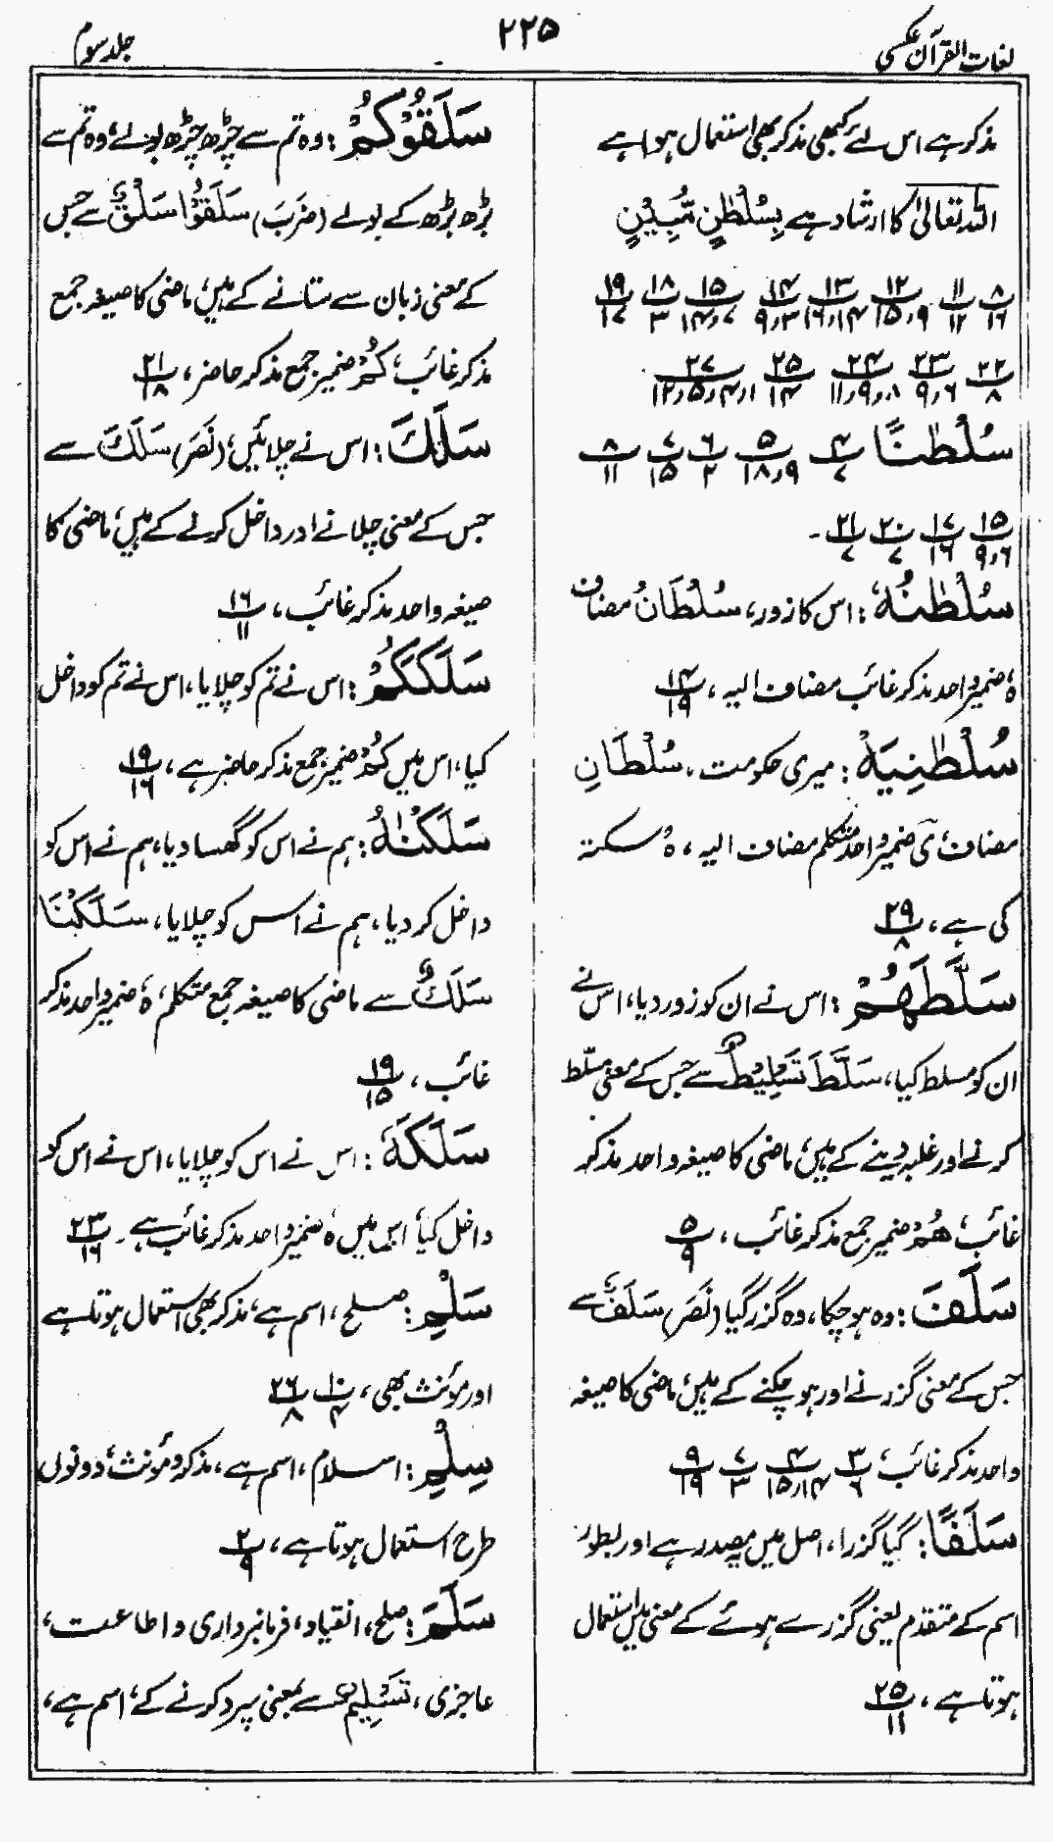 لغات القرآن عکسی
۲۲۵
جلد سوم
مذکر ہے اس لئے کبھی مذکر بھی استعمال ہوا ہے
اللہ تعالیٰ کا ارشاد ہے بِسُلْطٰنٍ مُّبِیْنٍ
۸/۱۶ ۱۱/۱۲ ۱۲/۹،۱۵ ۱۳/۱۴،۱۶ ۱۴/۳،۹ ۱۵/۷،۱۴ ۱۸/۳ ۱۹/۱۷
۲۲/۸ ۲۳/۶،۹ ۲۴/۸،۹،۱۱ ۲۵/۱۴ ۲۷/۱،۴،۵،۱۲
سُلْطٰنًا ۴/۷ ۵/۹،۱۸ ۶/۲ ۷/۱۵ ۸/۱۱
۱۵/۶،۹ ۱۷/۱۶ ۲۰/۷ ۲۱/۷ -
سُلْطٰنُهٗ: اس کا زور، سُلْطَانُ مضاف
ہٗ ضمیر واحد مذکر غائب مضاف الیہ، ۱۴/۱۹
سُلْطٰنِیَهْ: میری حکومت، سُلْطَانِ
مضاف، ی ضمیر واحد متکلم مضاف الیہ، ہْ سکتہ
کی ہے، ۲۹/۸
سَلَّطَهُمْ: اس نے ان کو زور دیا، اس نے
ان کو مسلط کیا، سَلَّطَ تَسْلِیْطٌ سے جس کے معنی مسلّط
کرنے اور غلبہ دینے کے ہیں، ماضی کا صیغہ واحد مذکر
غائب، هُمْ ضمیر جمع مذکر غائب، ۵/۹
سَلَفَ: وہ ہو چکا، وہ گزر گیا (نَصَرَ) سَلَفٌ سے
جس کے معنی گزرنے اور ہو چکنے کے ہیں، ماضی کا صیغہ
واحد مذکر غائب، ۳/۶ ۴/۱۴،۱۵ ۷/۳ ۹/۱۹
سَلَفًا: گیا گزرا، اصل میں یہ مصدر ہے اور بطور
اسم کے متقدم یعنی گزرے ہوئے کے معنی میں استعمال
ہوتا ہے، ۲۵/۱۱
سَلَقُوْكُمْ: وہ تم سے چڑھ چڑھ بولے، وہ تم سے
بڑھ بڑھ کے بولے (ضَرَبَ) سَلَقُوْا سَلْقٌ سے جس
کے معنی زبان سے ستانے کے ہیں، ماضی کا صیغہ جمع
مذکر غائب، کُمْ ضمیر جمع مذکر حاضر، ۲۱/۱۸
سَلَكَ: اس نے چلائیں، (نَصَرَ) سَلَكَ سے
جس کے معنی چلانے اور داخل کرنے کے ہیں، ماضی کا
صیغہ واحد مذکر غائب، ۱۶/۱۱
سَلَكَكُمْ: اس نے تم کو چلایا، اس نے تم کو داخل
کیا، اس میں کُمْ ضمیر جمع مذکر حاضر ہے، ۱۹/۱۶
سَلَكْنٰهُ: ہم نے اس کو گھسا دیا، ہم نے اس کو
داخل کر دیا، ہم نے اس کو چلایا، سَلَكْنَا
سَلَكٌ سے ماضی کا صیغہ جمع متکلم، ہٗ ضمیر واحد مذکر
غائب، ۱۹/۱۵
سَلَكَهٗ: اس نے اس کو چلایا، اس نے اس کو
داخل کیا، اس میں ہٗ ضمیر واحد مذکر غائب ہے۔ ۲۳/۱۶
سَلْمِ: صلح، اسم ہے، مذکر بھی استعمال ہوتا ہے
اور مؤنث بھی، ۱۰/۴ ۲۶/۸
سِلْمِ: اسلام، اسم ہے، مذکر و مؤنث، دونوں
طرح استعمال ہوتا ہے، ۲/۹
سَلَمَ: صلح، انقیاد، فرمانبرداری و اطاعت،
عاجزی، تَسْلِیْم سے بمعنی سپرد کرنے کے، اسم ہے،